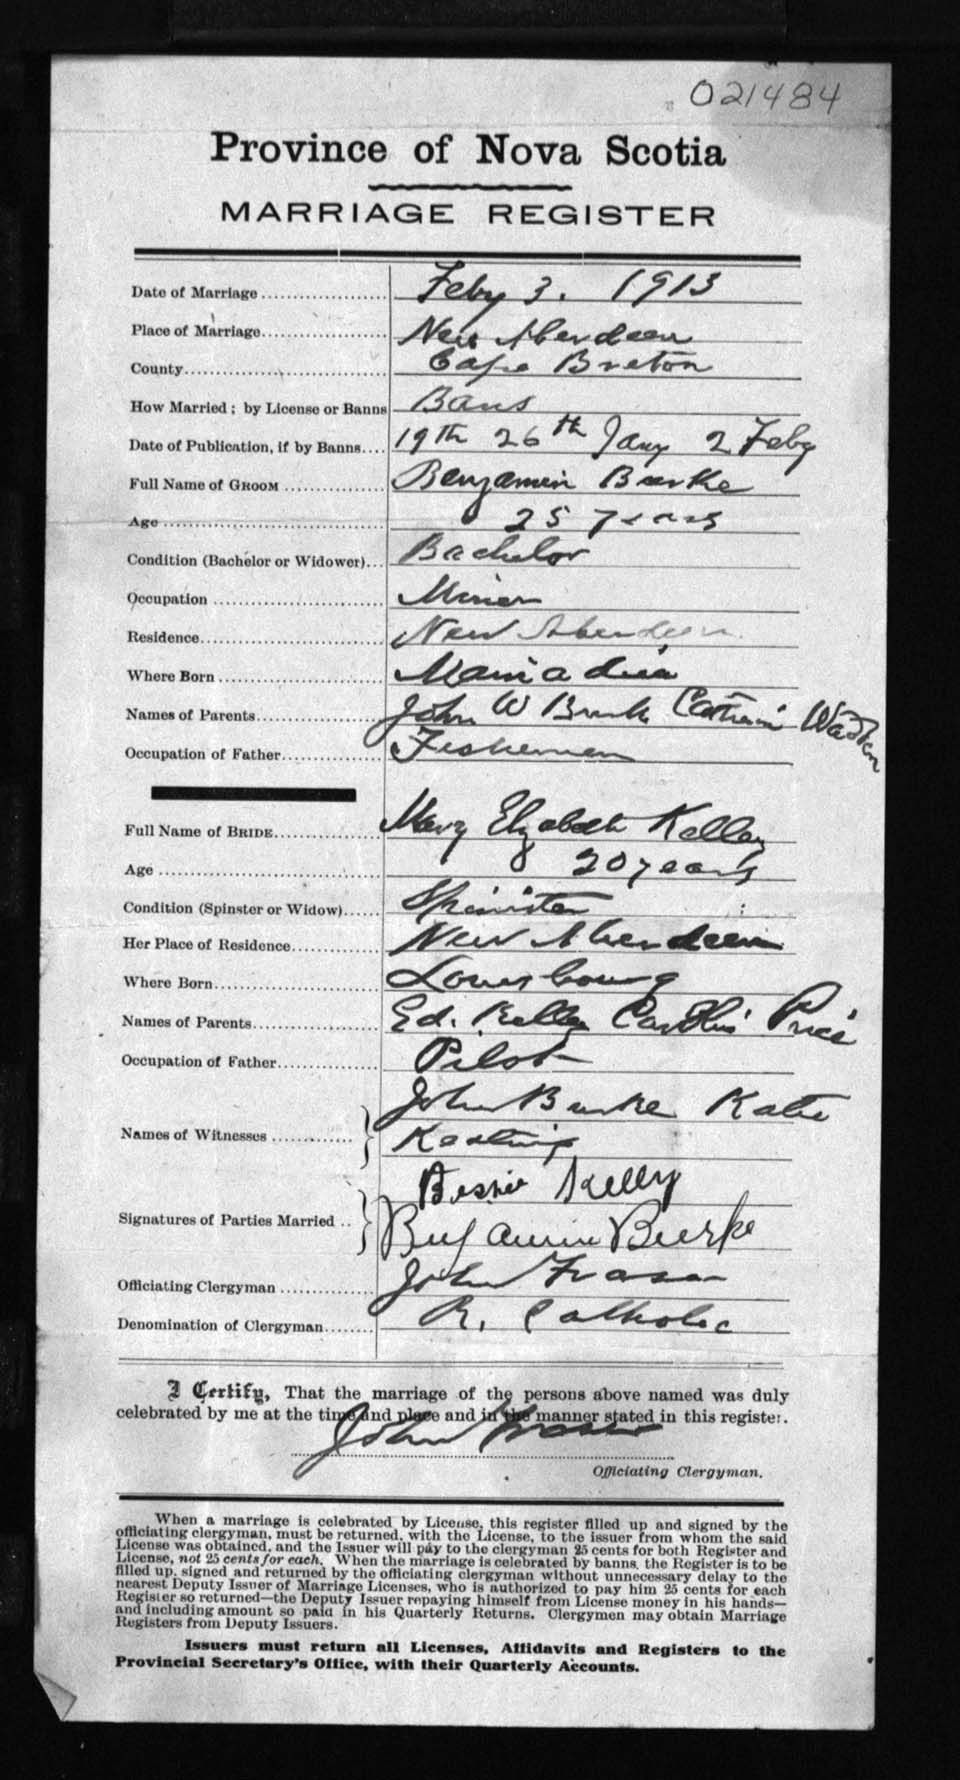 021484
Province of Nova Scotia
MARRIAGE REGISTER
Date of Marriage Feby 3. 1913
Place of Marriage New Aberdeen
County Cape Breton
How Married; by License or Banns Bans
Date of Publication, if by Banns 19th 26th Jany 2 Feby
Full Name of GROOM Benjamin Burke
Age 25 years
Condition (Bachelor or Widower) Bachelor
Occupation Miner
Residence New Aberdeen
Where Born Mainadieu
Names of Parents John W Burk Catherin Wadden
Occupation of Father Fisherman
Full Name of BRIDE Mary Elizabeth Kelley
Age 20 years
Condition (Spinster or Widow) Spinster
Her Place of Residence New Aberdeen
Where Born Louisbourg
Names of Parents Ed. Kelley Price
Occupation of Father Pilot
John Burke Katie
Names of Witnesses Keating
Bessie Kelly
Signatures of Parties Married Benjamin Burke
Officiating Clergyman John Fraser
Denomination of Clergyman R. Catholic
I Certify, That the marriage of the persons above named was duly
celebrated by me at the time and place and in the manner stated in this register.
John Fraser
Officiating Clergyman.
When a marriage is celebrated by License, this register filled up and signed by the
officiating clergyman, must be returned, with the License, to the issuer from whom the said
License was obtained, and the Issuer will pay to the clergyman 25 cents for both Register and
License, not 25 cents for each. When the marriage is celebrated by banns, the Register is to be
filled up, signed and returned by the officiating clergyman without unnecessary delay to the
nearest Deputy Issuer of Marriage Licenses, who is authorized to pay him 25 cents for each
Register so returned—the Deputy Issuer repaying himself from License money in his hands—
and including amount so paid in his Quarterly Returns. Clergymen may obtain Marriage
Registers from Deputy Issuers.
Issuers must return all Licenses, Affidavits and Registers to the
Provincial Secretary's Office, with their Quarterly Accounts.